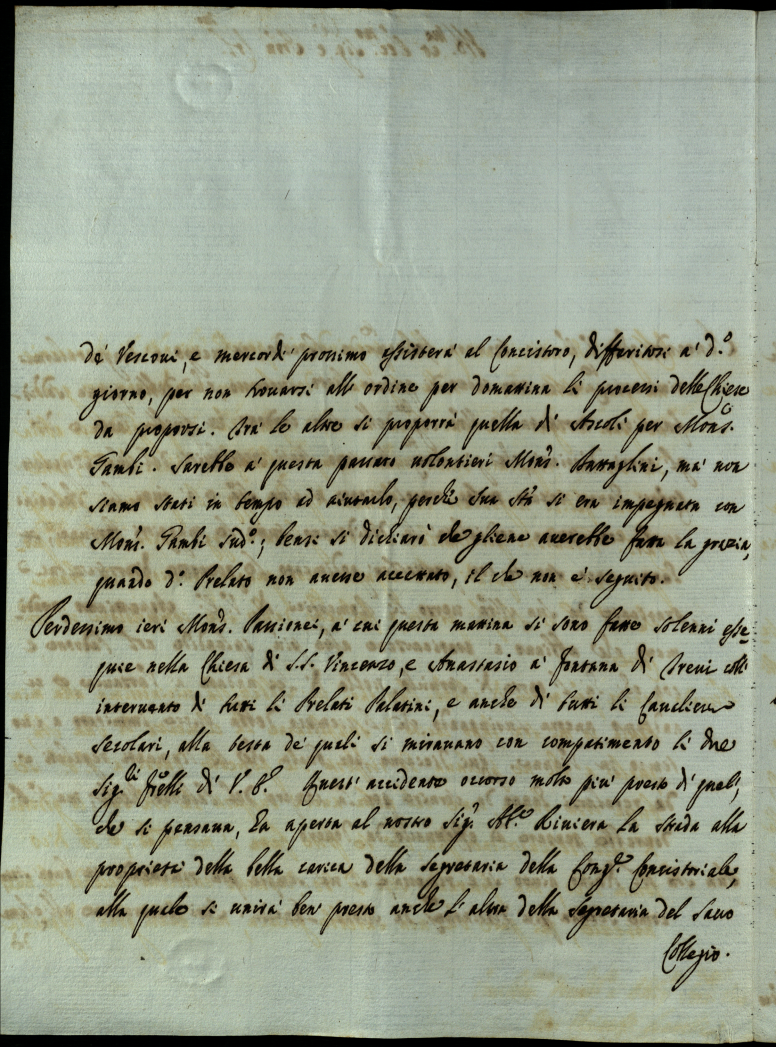 de' Vescovi, e mercordi' prossimo assisterà al Concistoro, differitosi a' d.º
giorno, per non trovarsi all'ordine per domattina li processi delle Chiese
da proporsi. Trà le altre si proporrà quella di Ascoli per Mons.r
Gambi. Sarebbe a' questa passato volontieri Mons.r Battaglini, ma' non
siamo stati in tempo ad aiutarlo, perche Sua Stà si era impegnata con
Mons.r Gambi sud.º; bensi si dichiarò che gliene averebbe fatta la grazia,
quando d.º Prelato non avesse accettato, il che non è seguito.
Perdessimo ieri Mons.r Passionei, a' cui questa mattina si sono fatte solenni esse-
quie nella Chiesa di S.S. Vincenzo, e Anastasio a' fontana di Trevi coll'
intervento di tutti li Prelati Palatini, e anche di tutti li Cavalieri
secolari, alla testa de quali si miravano con compatimento li due
Sig.ri frelli di V. E. Quest' accidente occorso molto più presto di quel,
che si pensava, ha aperta al nostro Sig.r Ab.e Riviera la strada alla
proprietà della bella carica della segretaria della Cong.e Concistoriale,
alla quale si unirà ben presto anche l'altra della segretaria del Sacro
Collegio.